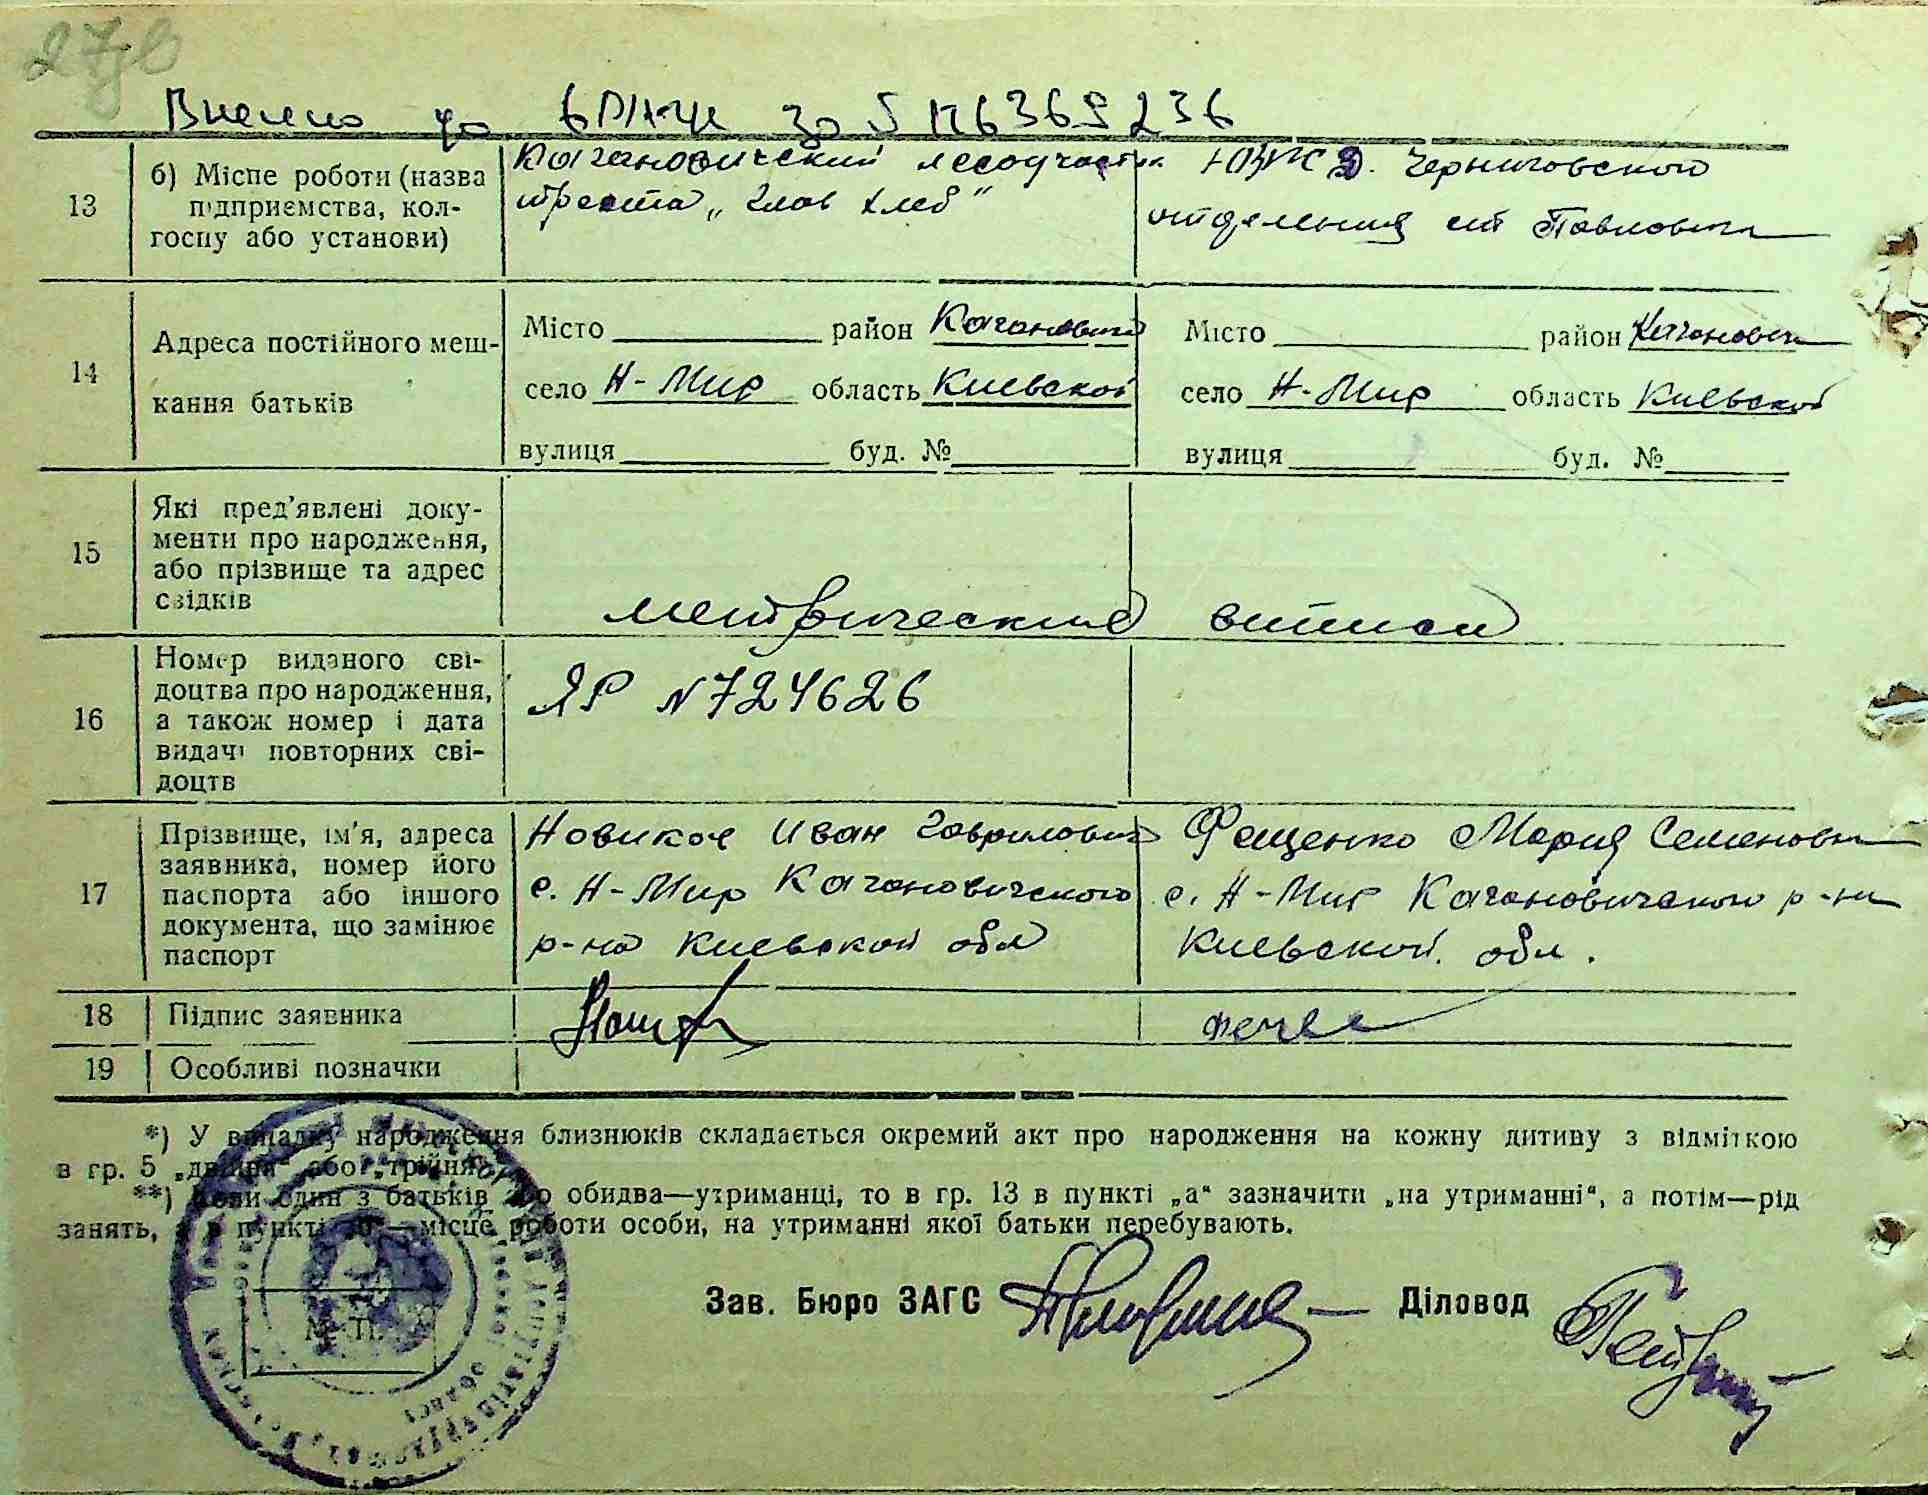 27 зв
Внесено до
13
б) Місце роботи (назва
підприємства, кол-
госпу або установи)
Кагановический лесоучасток
треста „Глав хлеб“
ЮЗЖД. Черниговского
отделения ст
14
Адреса постійного меш-
кання батьків
Місто район Каганович
село Н-Мир область Киевской
вулиця буд. №
Місто район Каганович
село Н-Мир область Киевской
вулиця буд. №
15
Які пред'явлені доку-
менти про народження,
або прізвище та адрес
свідків
метрические
16
Номер виданого сві-
доцтва про народження,
а також номер і дата
видачі повторних сві-
доцтв
ЯР №724626
17
Прізвище, ім'я, адреса
заявника, номер його
паспорта або іншого
документа, що замінює
паспорт
Иван Гаврилович
с. Н-Мир Кагановичского
р-на Киевской обл
Фещенко Мария Семеновна
с. Н-Мир Кагановичского р-на
Киевской. обл.
18
Підпис заявника
19
Особливі позначки
*) У випадку народження близнюків складається окремий акт про народження на кожну дитину з відміткою
в гр. 5 „двійня“ або „трійня“.
**) Коли один з батьків або обидва—утриманці, то в гр. 13 в пункті „а“ зазначити „на утриманні“, а потім—рід
занять, а в пункті „б“—місце роботи особи, на утриманні якої батьки перебувають.
Зав. Бюро ЗАГС Діловод
М. П.